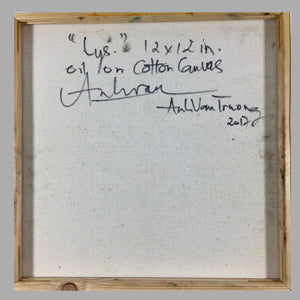 "Lys." 12x12 in.
oil on Cotton Canvas
Anhvan
AnhVan Truong
2017